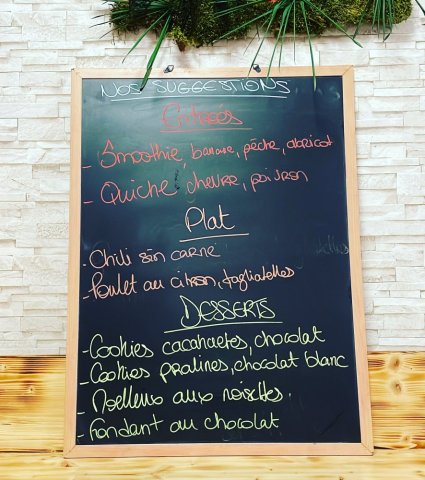 NOS SUGGESTIONS
Entrées
- Smoothie, banane, pêche, abricot
- Quiche chèvre, poivron
Plat
- Chili sin carne
- Poulet au citron, tagliatelles
DESSERTS
- Cookies cacahuetes, chocolat
- Cookies pralines, chocolat blanc
- Moelleux aux noisettes.
- Fondant au chocolat